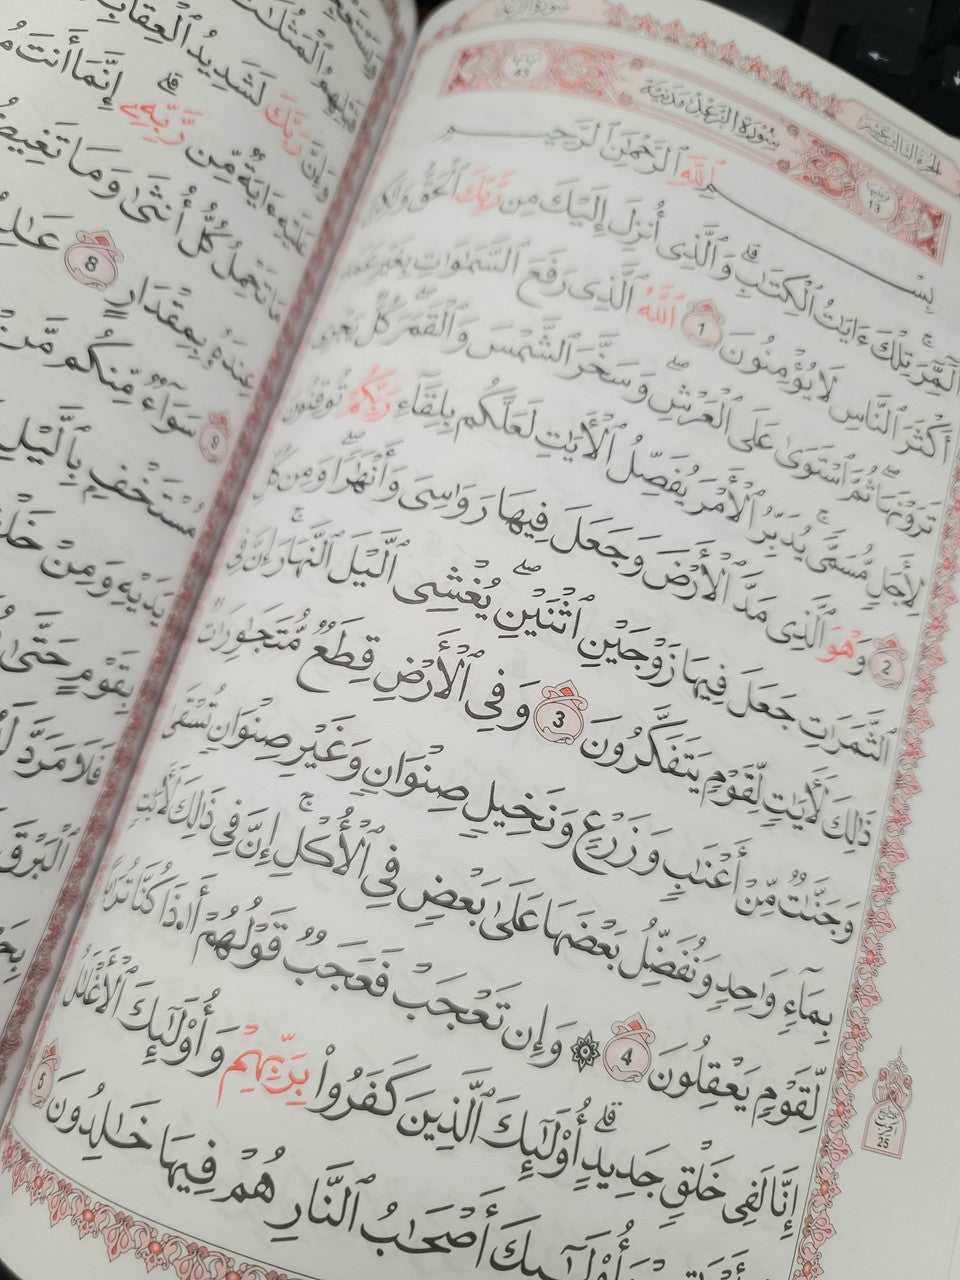 سُورَةُ الرَّعْدِ
الجزء الثالث عشر
ترتيبها 13
سُورَةُ الرَّعْدِ مَدَنِيَّة
آياتها 43
بِسْمِ ٱللَّهِ ٱلرَّحْمَٰنِ ٱلرَّحِيمِ
الٓمٓر ۚ تِلْكَ ءَايَٰتُ ٱلْكِتَٰبِ ۗ وَٱلَّذِىٓ أُنزِلَ إِلَيْكَ مِن رَّبِّكَ ٱلْحَقُّ وَلَٰكِنَّ
أَكْثَرَ ٱلنَّاسِ لَا يُؤْمِنُونَ 1 ٱللَّهُ ٱلَّذِى رَفَعَ ٱلسَّمَٰوَٰتِ بِغَيْرِ عَمَدٍ
تَرَوْنَهَا ۖ ثُمَّ ٱسْتَوَىٰ عَلَى ٱلْعَرْشِ ۖ وَسَخَّرَ ٱلشَّمْسَ وَٱلْقَمَرَ ۖ كُلٌّ يَجْرِى
لِأَجَلٍ مُّسَمًّى ۚ يُدَبِّرُ ٱلْأَمْرَ يُفَصِّلُ ٱلْءَايَٰتِ لَعَلَّكُم بِلِقَآءِ رَبِّكُمْ تُوقِنُونَ
2 وَهُوَ ٱلَّذِى مَدَّ ٱلْأَرْضَ وَجَعَلَ فِيهَا رَوَٰسِىَ وَأَنْهَٰرًا ۖ وَمِن كُلِّ
ٱلثَّمَرَٰتِ جَعَلَ فِيهَا زَوْجَيْنِ ٱثْنَيْنِ ۖ يُغْشِى ٱلَّيْلَ ٱلنَّهَارَ ۚ إِنَّ فِى
ذَٰلِكَ لَءَايَٰتٍ لِّقَوْمٍ يَتَفَكَّرُونَ 3 وَفِى ٱلْأَرْضِ قِطَعٌ مُّتَجَٰوِرَٰتٌ
وَجَنَّٰتٌ مِّنْ أَعْنَٰبٍ وَزَرْعٌ وَنَخِيلٌ صِنْوَانٌ وَغَيْرُ صِنْوَانٍ يُسْقَىٰ
بِمَآءٍ وَٰحِدٍ وَنُفَضِّلُ بَعْضَهَا عَلَىٰ بَعْضٍ فِى ٱلْأُكُلِ ۚ إِنَّ فِى ذَٰلِكَ لَءَايَٰتٍ
لِّقَوْمٍ يَعْقِلُونَ 4 ۞ وَإِن تَعْجَبْ فَعَجَبٌ قَوْلُهُمْ أَءِذَا كُنَّا تُرَٰبًا
إِنَّا لَفِى خَلْقٍ جَدِيدٍ ۗ أُو۟لَٰٓئِكَ ٱلَّذِينَ كَفَرُوا۟ بِرَبِّهِمْ ۖ وَأُو۟لَٰٓئِكَ ٱلْأَغْلَٰلُ
وَأُو۟لَٰٓئِكَ أَصْحَٰبُ ٱلنَّارِ ۖ هُمْ فِيهَا خَٰلِدُونَ 5
25
قَبْلِهِمُ ٱلْمَثُلَٰتُ
وَإِنَّ رَبَّكَ لَشَدِيدُ ٱلْعِقَابِ
عَلَيْهِ ءَايَةٌ مِّن رَّبِّهِۦٓ ۗ إِنَّمَآ أَنتَ
مَا تَحْمِلُ كُلُّ أُنثَىٰ وَمَا تَغِيضُ
عِندَهُۥ بِمِقْدَارٍ 8 عَٰلِمُ
9 سَوَآءٌ مِّنكُم مَّنْ
مُسْتَخْفٍۭ بِٱلَّيْلِ
يَدَيْهِ وَمِنْ خَلْفِهِ
بِقَوْمٍ حَتَّىٰ
فَلَا مَرَدَّ لَهُ
ٱلْبَرْقَ